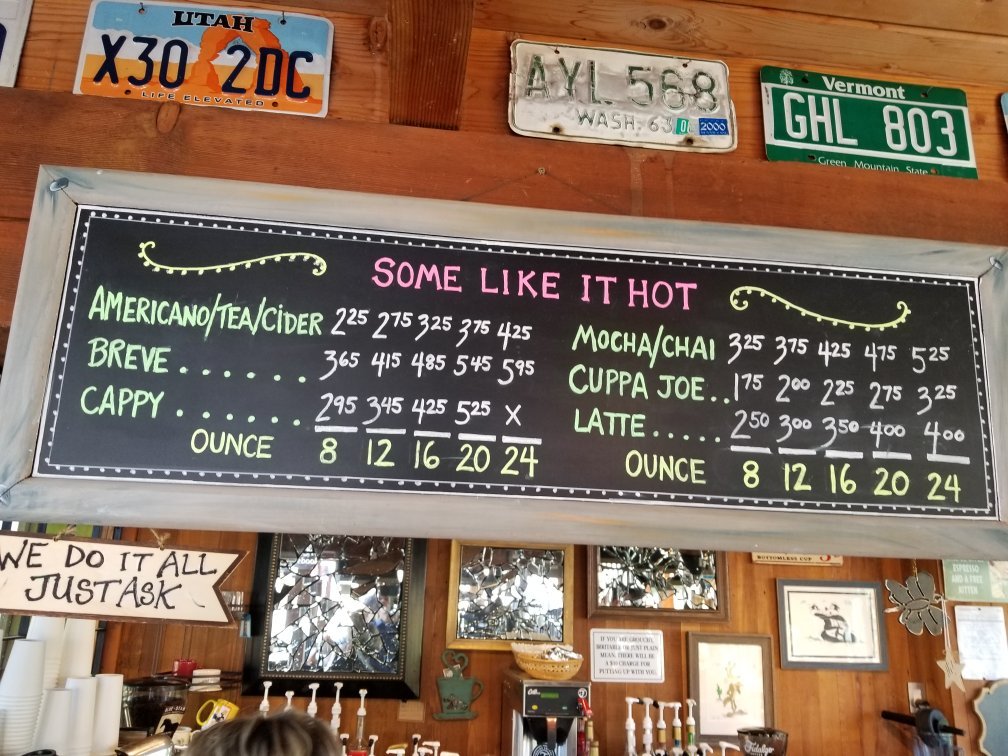 UTAH
X30 2DC
LIFE ELEVATED
AYL 568
WASH. 63 2000
Vermont
GHL 803
Green Mountain State
SOME LIKE IT HOT
AMERICANO/TEA/CIDER 2 25 2 75 3 25 3 75 4 25
BREVE . . . . . . 3 65 4 15 4 85 5 45 5 95
CAPPY . . . . . . 2 95 3 45 4 25 5 25 X
OUNCE 8 12 16 20 24
MOCHA/CHAI 3 25 3 75 4 25 4 75 5 25
CUPPA JOE.. 1 75 2 00 2 25 2 75 3 25
LATTE..... 2 50 3 00 3 50 4 00 4 00
OUNCE 8 12 16 20 24
WE DO IT ALL
JUST ASK
BOTTOMLESS CUP
ESPRESSO
AND A FREE
KITTEN
IF YOU ARE GROUCHY,
IRRITABLE OR JUST PLAIN
MEAN, THERE WILL BE
A $10 CHARGE FOR
PUTTING UP WITH YOU